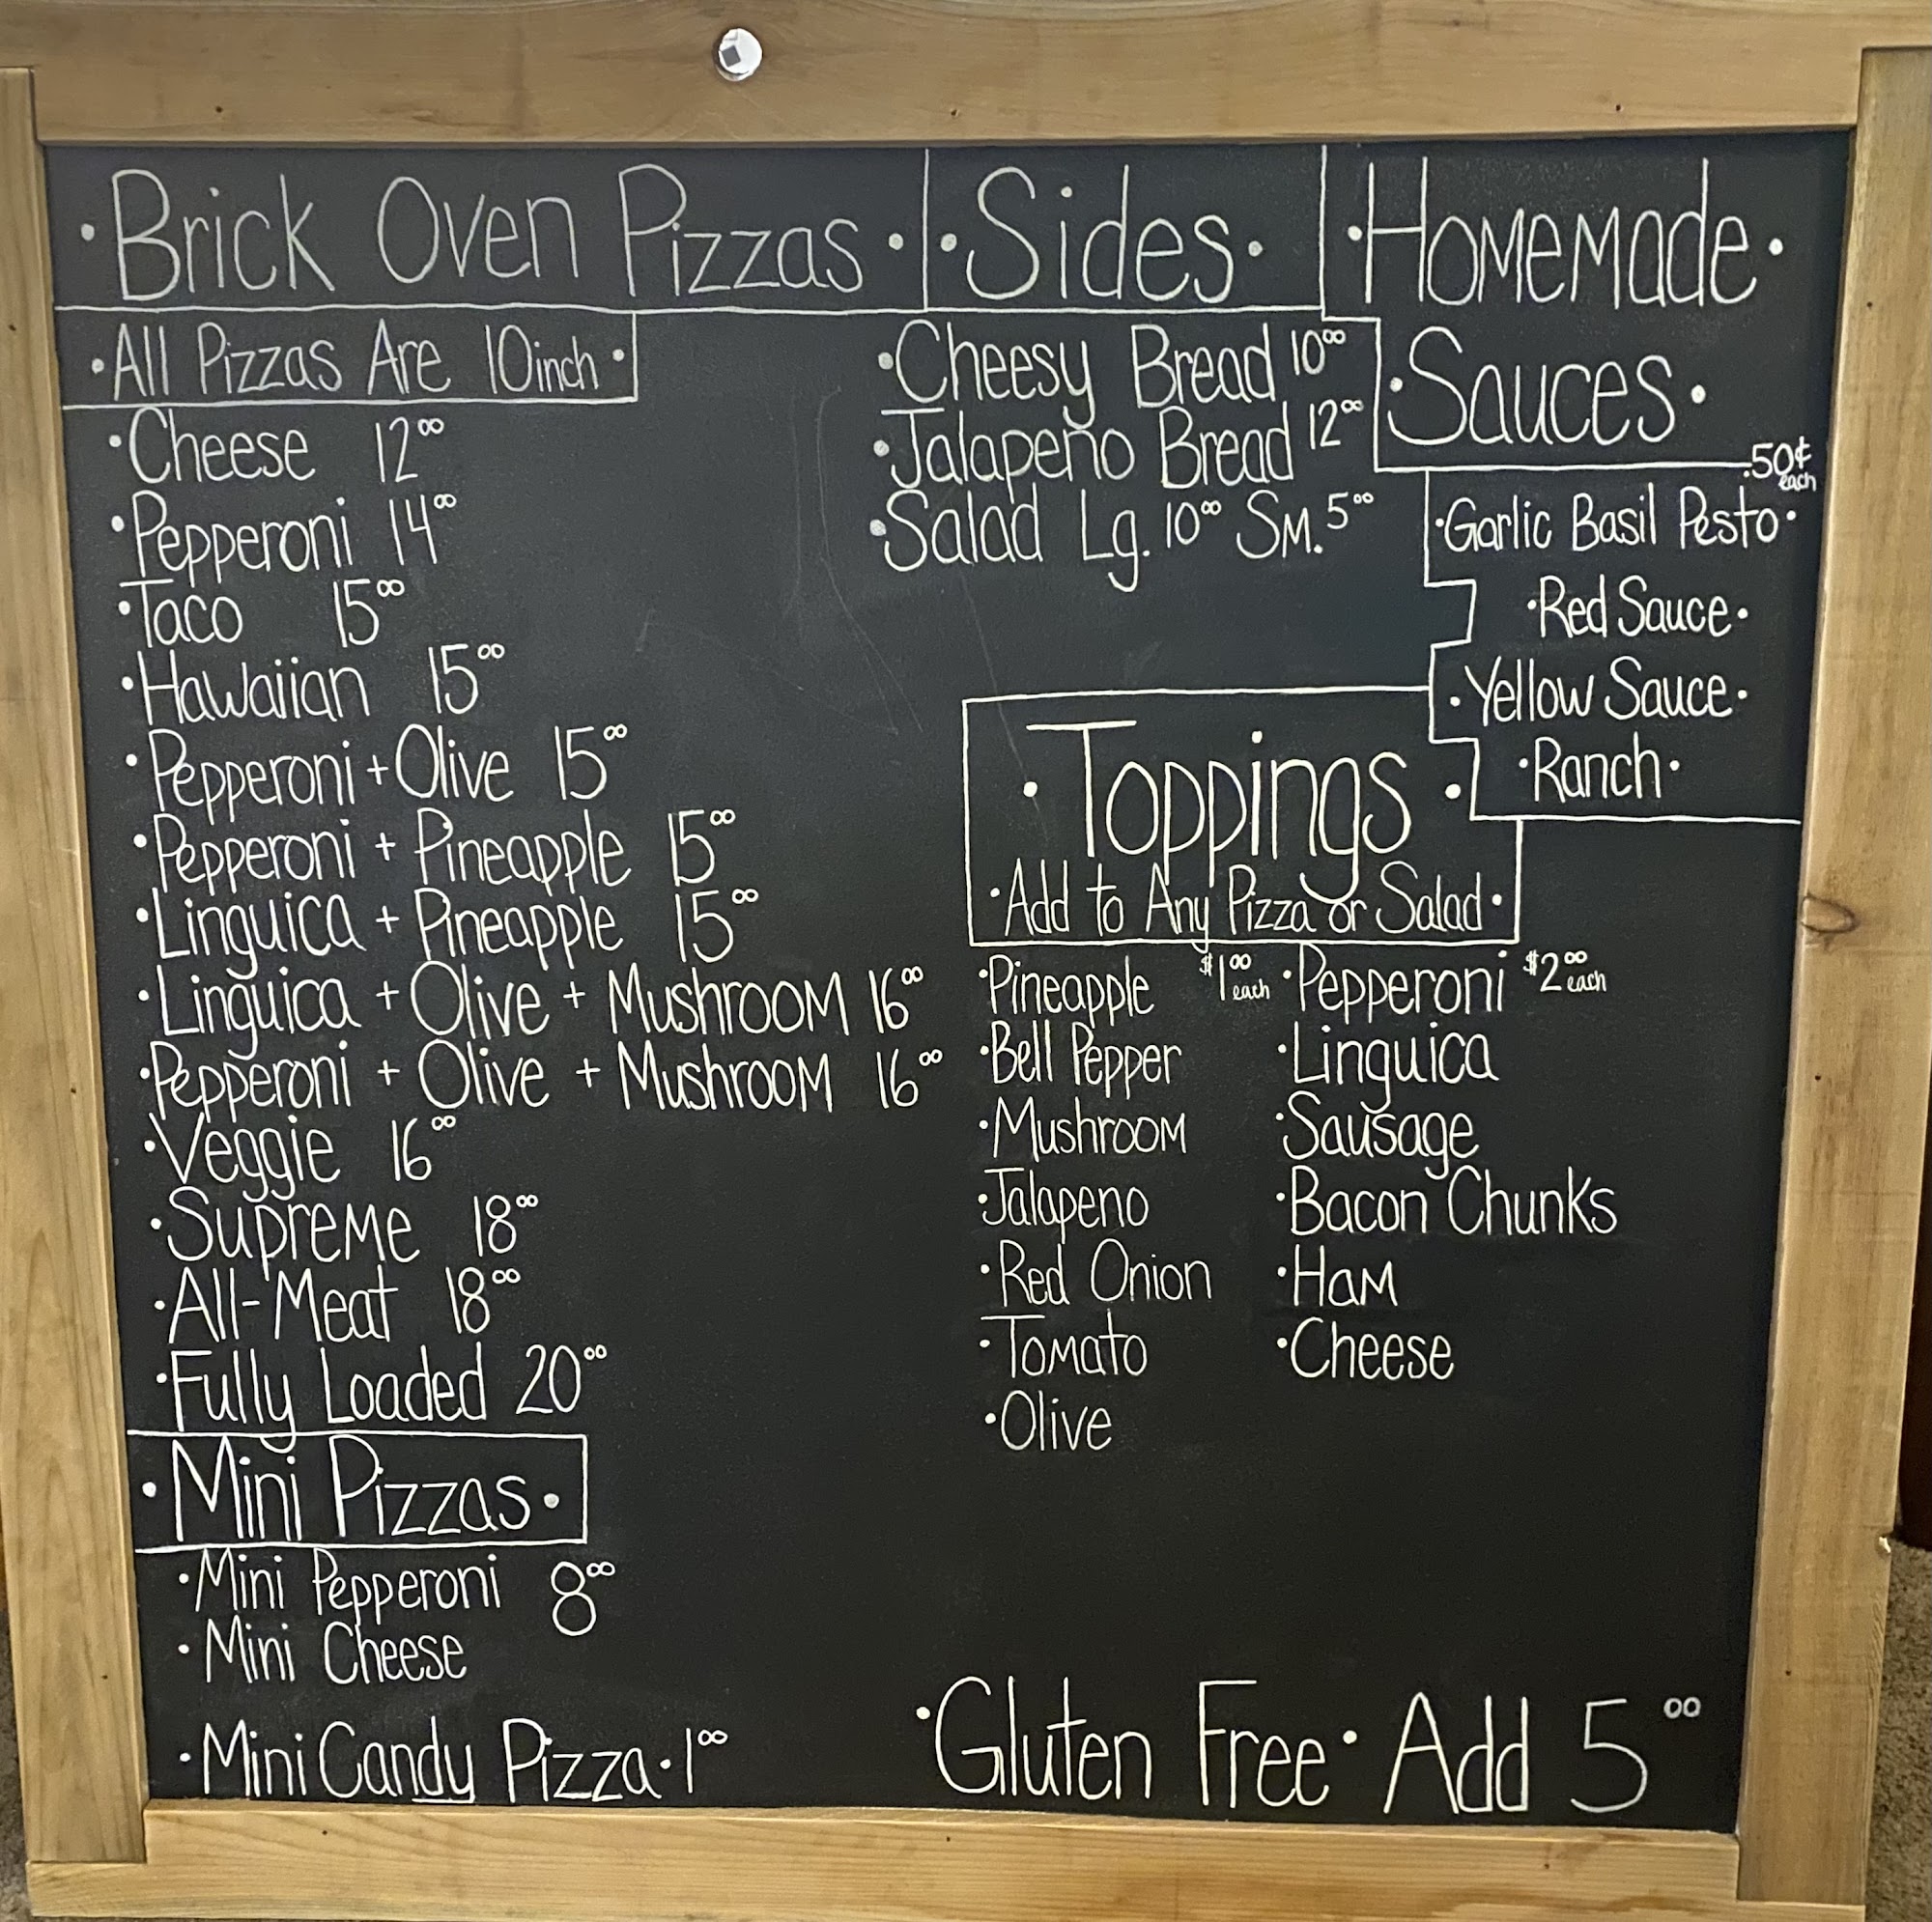 ·Brick Oven Pizzas·
·All Pizzas Are 10inch·
·Cheese 12⁰⁰
·Pepperoni 14⁰⁰
·Taco 15⁰⁰
·Hawaiian 15⁰⁰
·Pepperoni+Olive 15⁰⁰
·Pepperoni + Pineapple 15⁰⁰
·Linguica + Pineapple 15⁰⁰
·Linguica + Olive + Mushroom 16⁰⁰
·Pepperoni + Olive + Mushroom 16⁰⁰
·Veggie 16⁰⁰
·Supreme 18⁰⁰
·All-Meat 18⁰⁰
·Fully Loaded 20⁰⁰
·Mini Pizzas·
·Mini Pepperoni 8⁰⁰
·Mini Cheese
·Mini Candy Pizza·1⁰⁰
·Sides·
·Cheesy Bread 10⁰⁰
·Jalapeño Bread 12⁰⁰
·Salad Lg. 10⁰⁰ Sm. 5⁰⁰
·Homemade·
·Sauces·
.50¢ each
·Garlic Basil Pesto·
·Red Sauce·
·Yellow Sauce·
·Ranch·
·Toppings·
·Add to Any Pizza or Salad·
·Pineapple $1⁰⁰ each
·Bell Pepper
·Mushroom
·Jalapeno
·Red Onion
·Tomato
·Olive
·Pepperoni $2⁰⁰ each
·Linguica
·Sausage
·Bacon Chunks
·Ham
·Cheese
·Gluten Free· Add 5⁰⁰